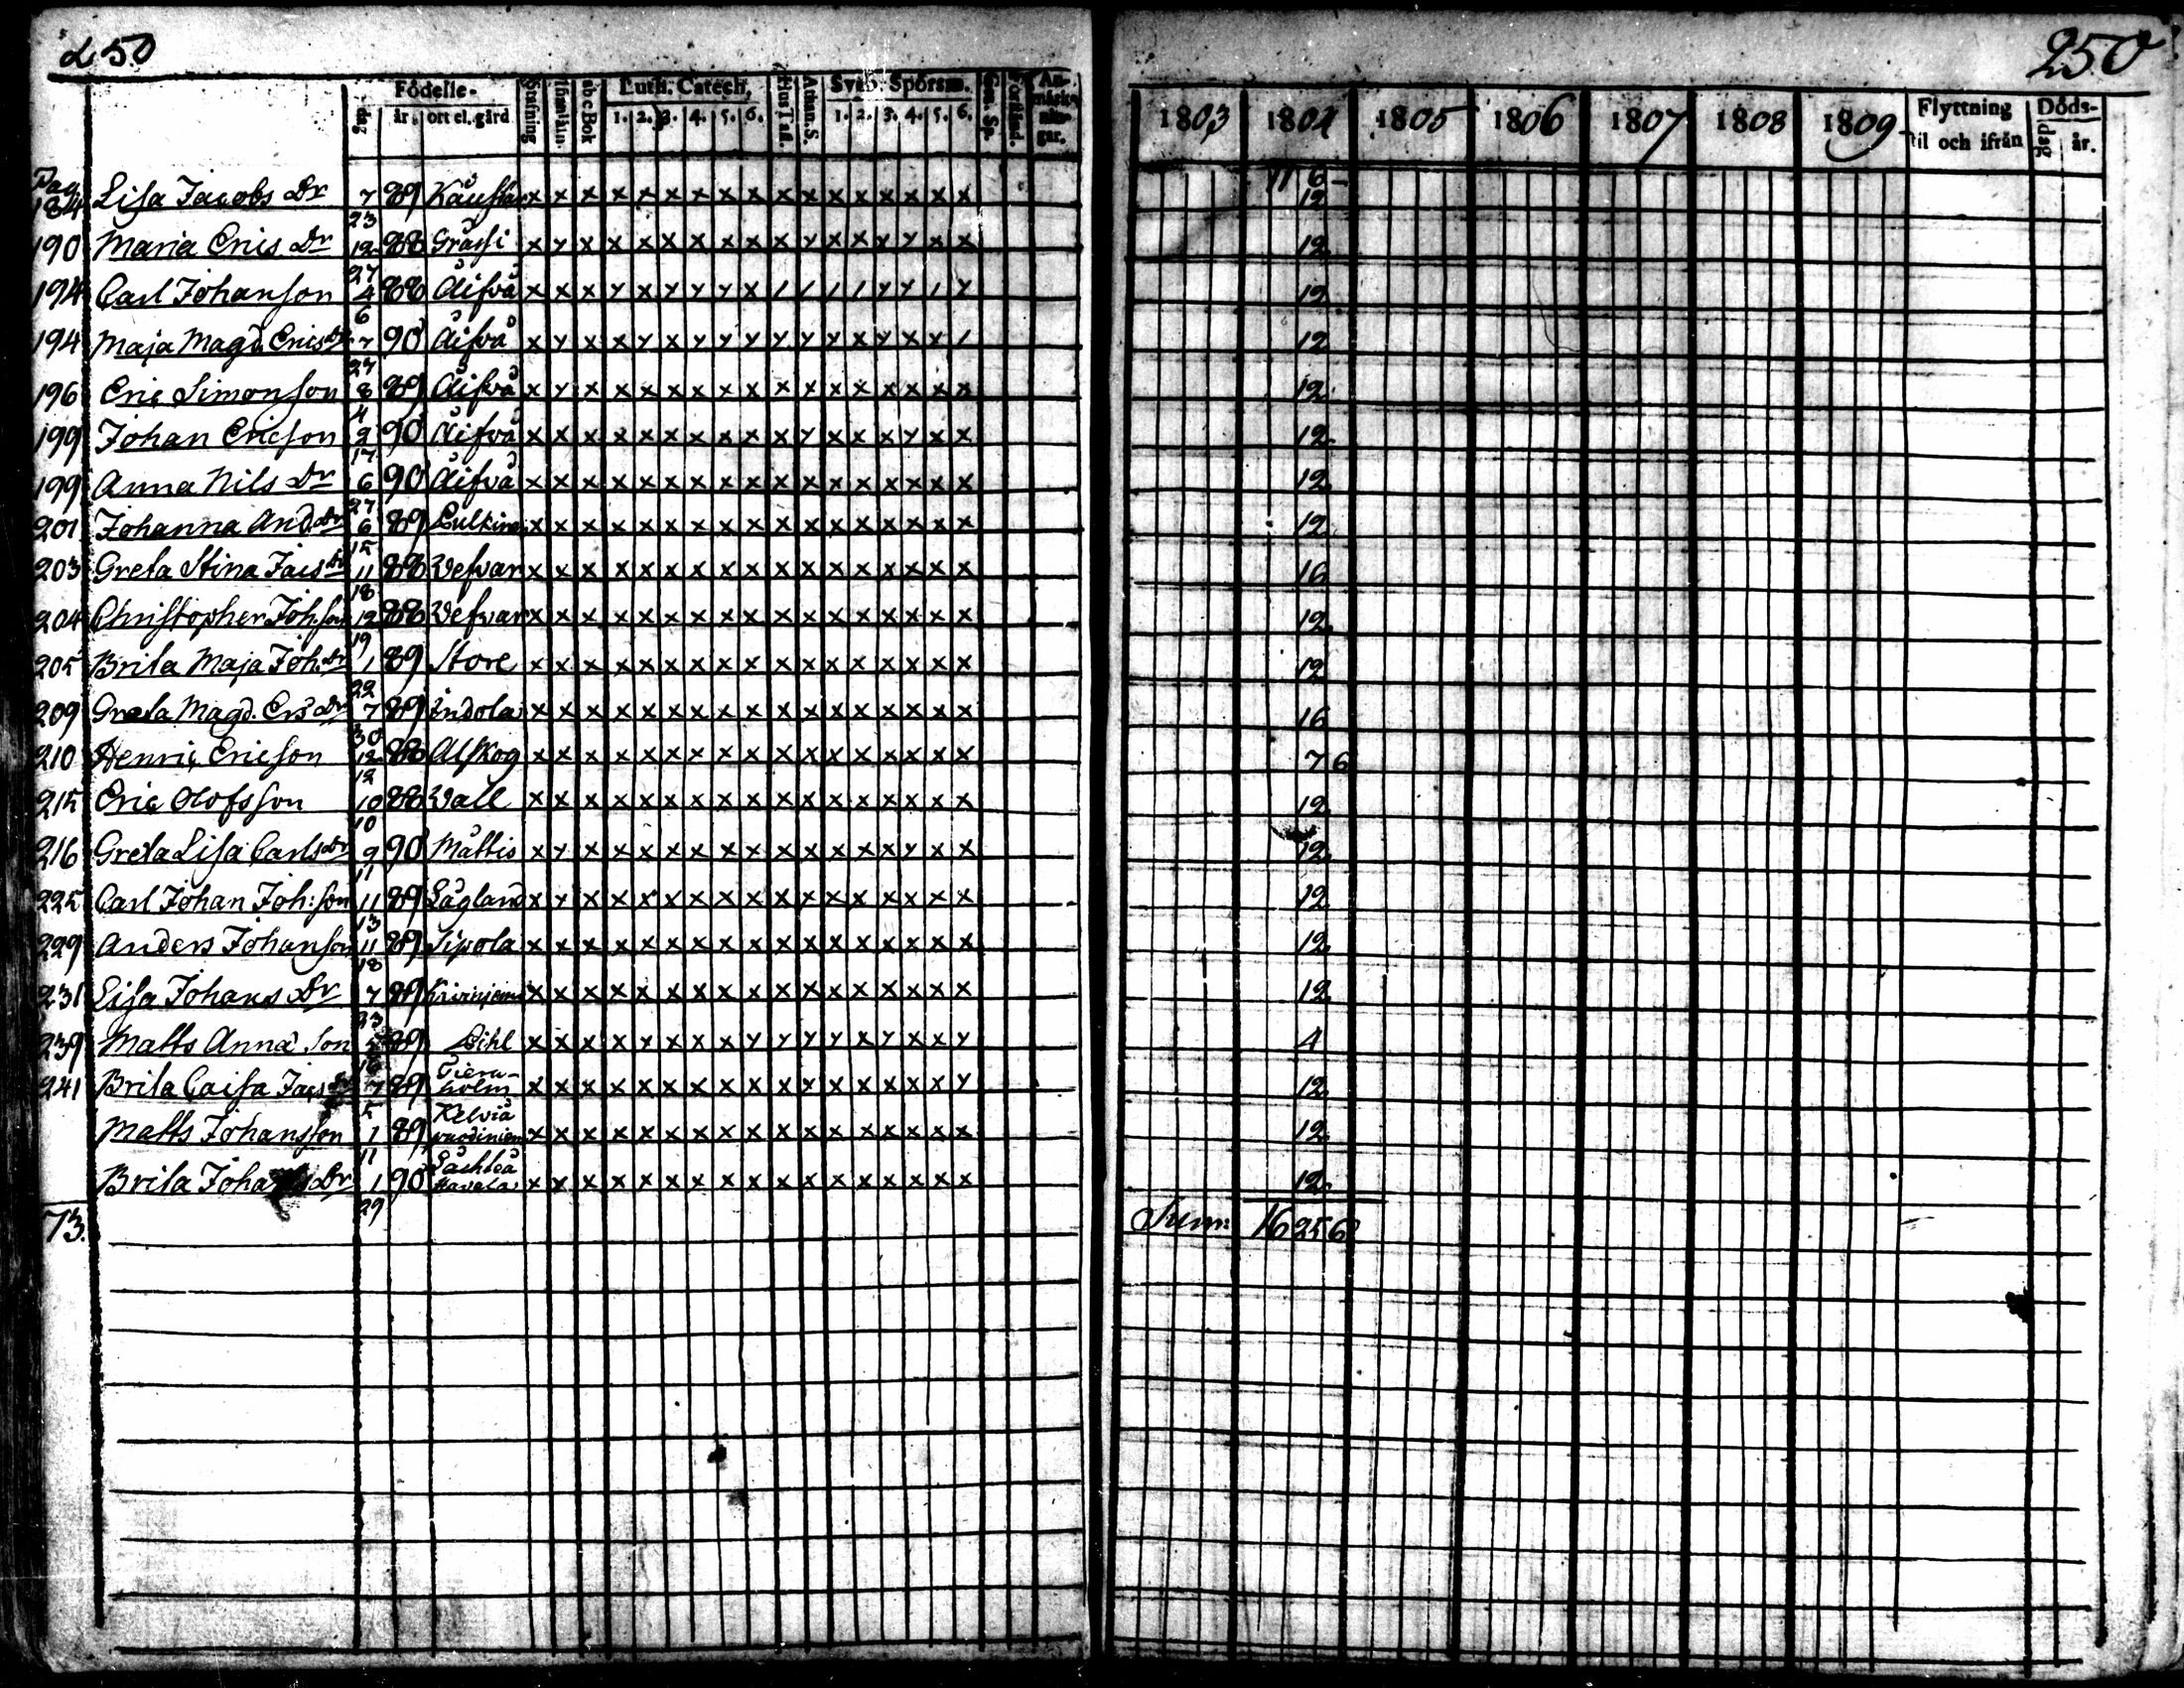 250
250
Födelse-
dag år. ort el. gård Stafning abcBok Luth. Catech. 1. 2. 3. 4. 5. 6. Hus Taf. Athan. S. Sveb. Spörsm. 1. 2. 3. 4. 5. 6. Förstånd.
1803 1804 1805 1806 1807 1808 1809 Flyttning til och ifrån Döds- dag år.
Pag. 11 6 -
184 Lisa Jacobs Dr 7 89 x x x x x x x x x x x x x x x x x 12
23
190 Maria Erics Dr 12 88 Grässi x y x x x x x x x x y x x y y x x 12
27
194 Carl Johanson 4 88 Åifvå x x x y x y y y x / / / / y y / y 12
6
194 Maja Magd. Erics Dr 7 90 Åifvå x y x x y x y y y y y y x y x y / 12
27
196 Eric Simonson 8 89 Åifvå x y x x x x x x x x x x x x x x x 12
4
199 Johan Ericson 2 90 Åifvå x x x x x x x x x x y x x x y x x 12
17
199 Anna Nils Dr 6 90 Åifvå x x x x x x x x x x x x x x x x x 12
27
201 Johanna And. Dr 6 89 x x x x x x x x x x x x x x x x x 12
15
203 Greta Stina Jacs Dr 11 88 Wefvar x x x x x x x x x x x x x x x x x 16
18
204 Christopher Joh.son 12 88 Wefvar x x x x x x x x x x x x x x x x x 12
19
205 Brita Maja Joh Dr 1 89 Store x x x x x x x x x x x x x x x x x 12
22
209 Greta Magd. Ers Dr 7 89 Indola x x x x x x x x x x x x x x x x x 16
30
210 Henric Ericson 12 88 Alskog x x x x x x x x x x x x x x x x x 7 6
12
215 Eric Olofsson 10 88 Wall x x x x x x x x x x x x x x x x x 12
10
216 Greta Lisa Carls Dr 9 90 Mattis x y x x x x x x x x x x x x y x x 12
11
225 Carl Johan Joh:son 11 89 Lågland x y x x x x x x x x x x x x x x x 12
13
229 Anders Johanson 11 89 Sipola x x x x x x x x x x x x x x x x x 12
18
231 Lisa Johans Dr 7 89 x x x x x x x x x x x x x x x x x 12
23
239 Matts Anna Son 89 Lihl x x x x y x x x y y y y x y x x y 4
16
241 Brita Caisa Jacs Dr 7 89 holm x x x x x x x x x x y x x x x x y 12
5
Matts Johansson 1 89 Kelviå x x x x x x x x x x x x x x x x x 12
11
Brita Johans Dr 1 90 x x x x x x x x x x x x x x x x x 12
29
73. Sum: 16 25 6